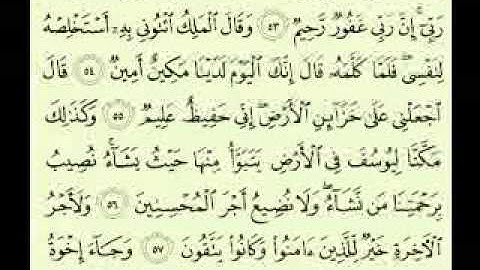 رَبِّىٓ ۚ إِنَّ رَبِّى غَفُورٌ رَّحِيمٌ ٥٣ وَقَالَ ٱلْمَلِكُ ٱئْتُونِى بِهِۦٓ أَسْتَخْلِصْهُ
لِنَفْسِى ۖ فَلَمَّا كَلَّمَهُۥ قَالَ إِنَّكَ ٱلْيَوْمَ لَدَيْنَا مَكِينٌ أَمِينٌ ٥٤ قَالَ
ٱجْعَلْنِى عَلَىٰ خَزَآئِنِ ٱلْأَرْضِ ۖ إِنِّى حَفِيظٌ عَلِيمٌ ٥٥ وَكَذَٰلِكَ
مَكَّنَّا لِيُوسُفَ فِى ٱلْأَرْضِ يَتَبَوَّأُ مِنْهَا حَيْثُ يَشَآءُ ۚ نُصِيبُ
بِرَحْمَتِنَا مَن نَّشَآءُ ۖ وَلَا نُضِيعُ أَجْرَ ٱلْمُحْسِنِينَ ٥٦ وَلَأَجْرُ
ٱلْأَخِرَةِ خَيْرٌ لِّلَّذِينَ ءَامَنُوا۟ وَكَانُوا۟ يَتَّقُونَ ٥٧ وَجَآءَ إِخْوَةُ